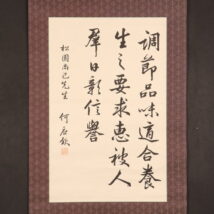 調節品味適合養
生之要求惠被人
羣日彰信譽
松園禹己先生
何應欽